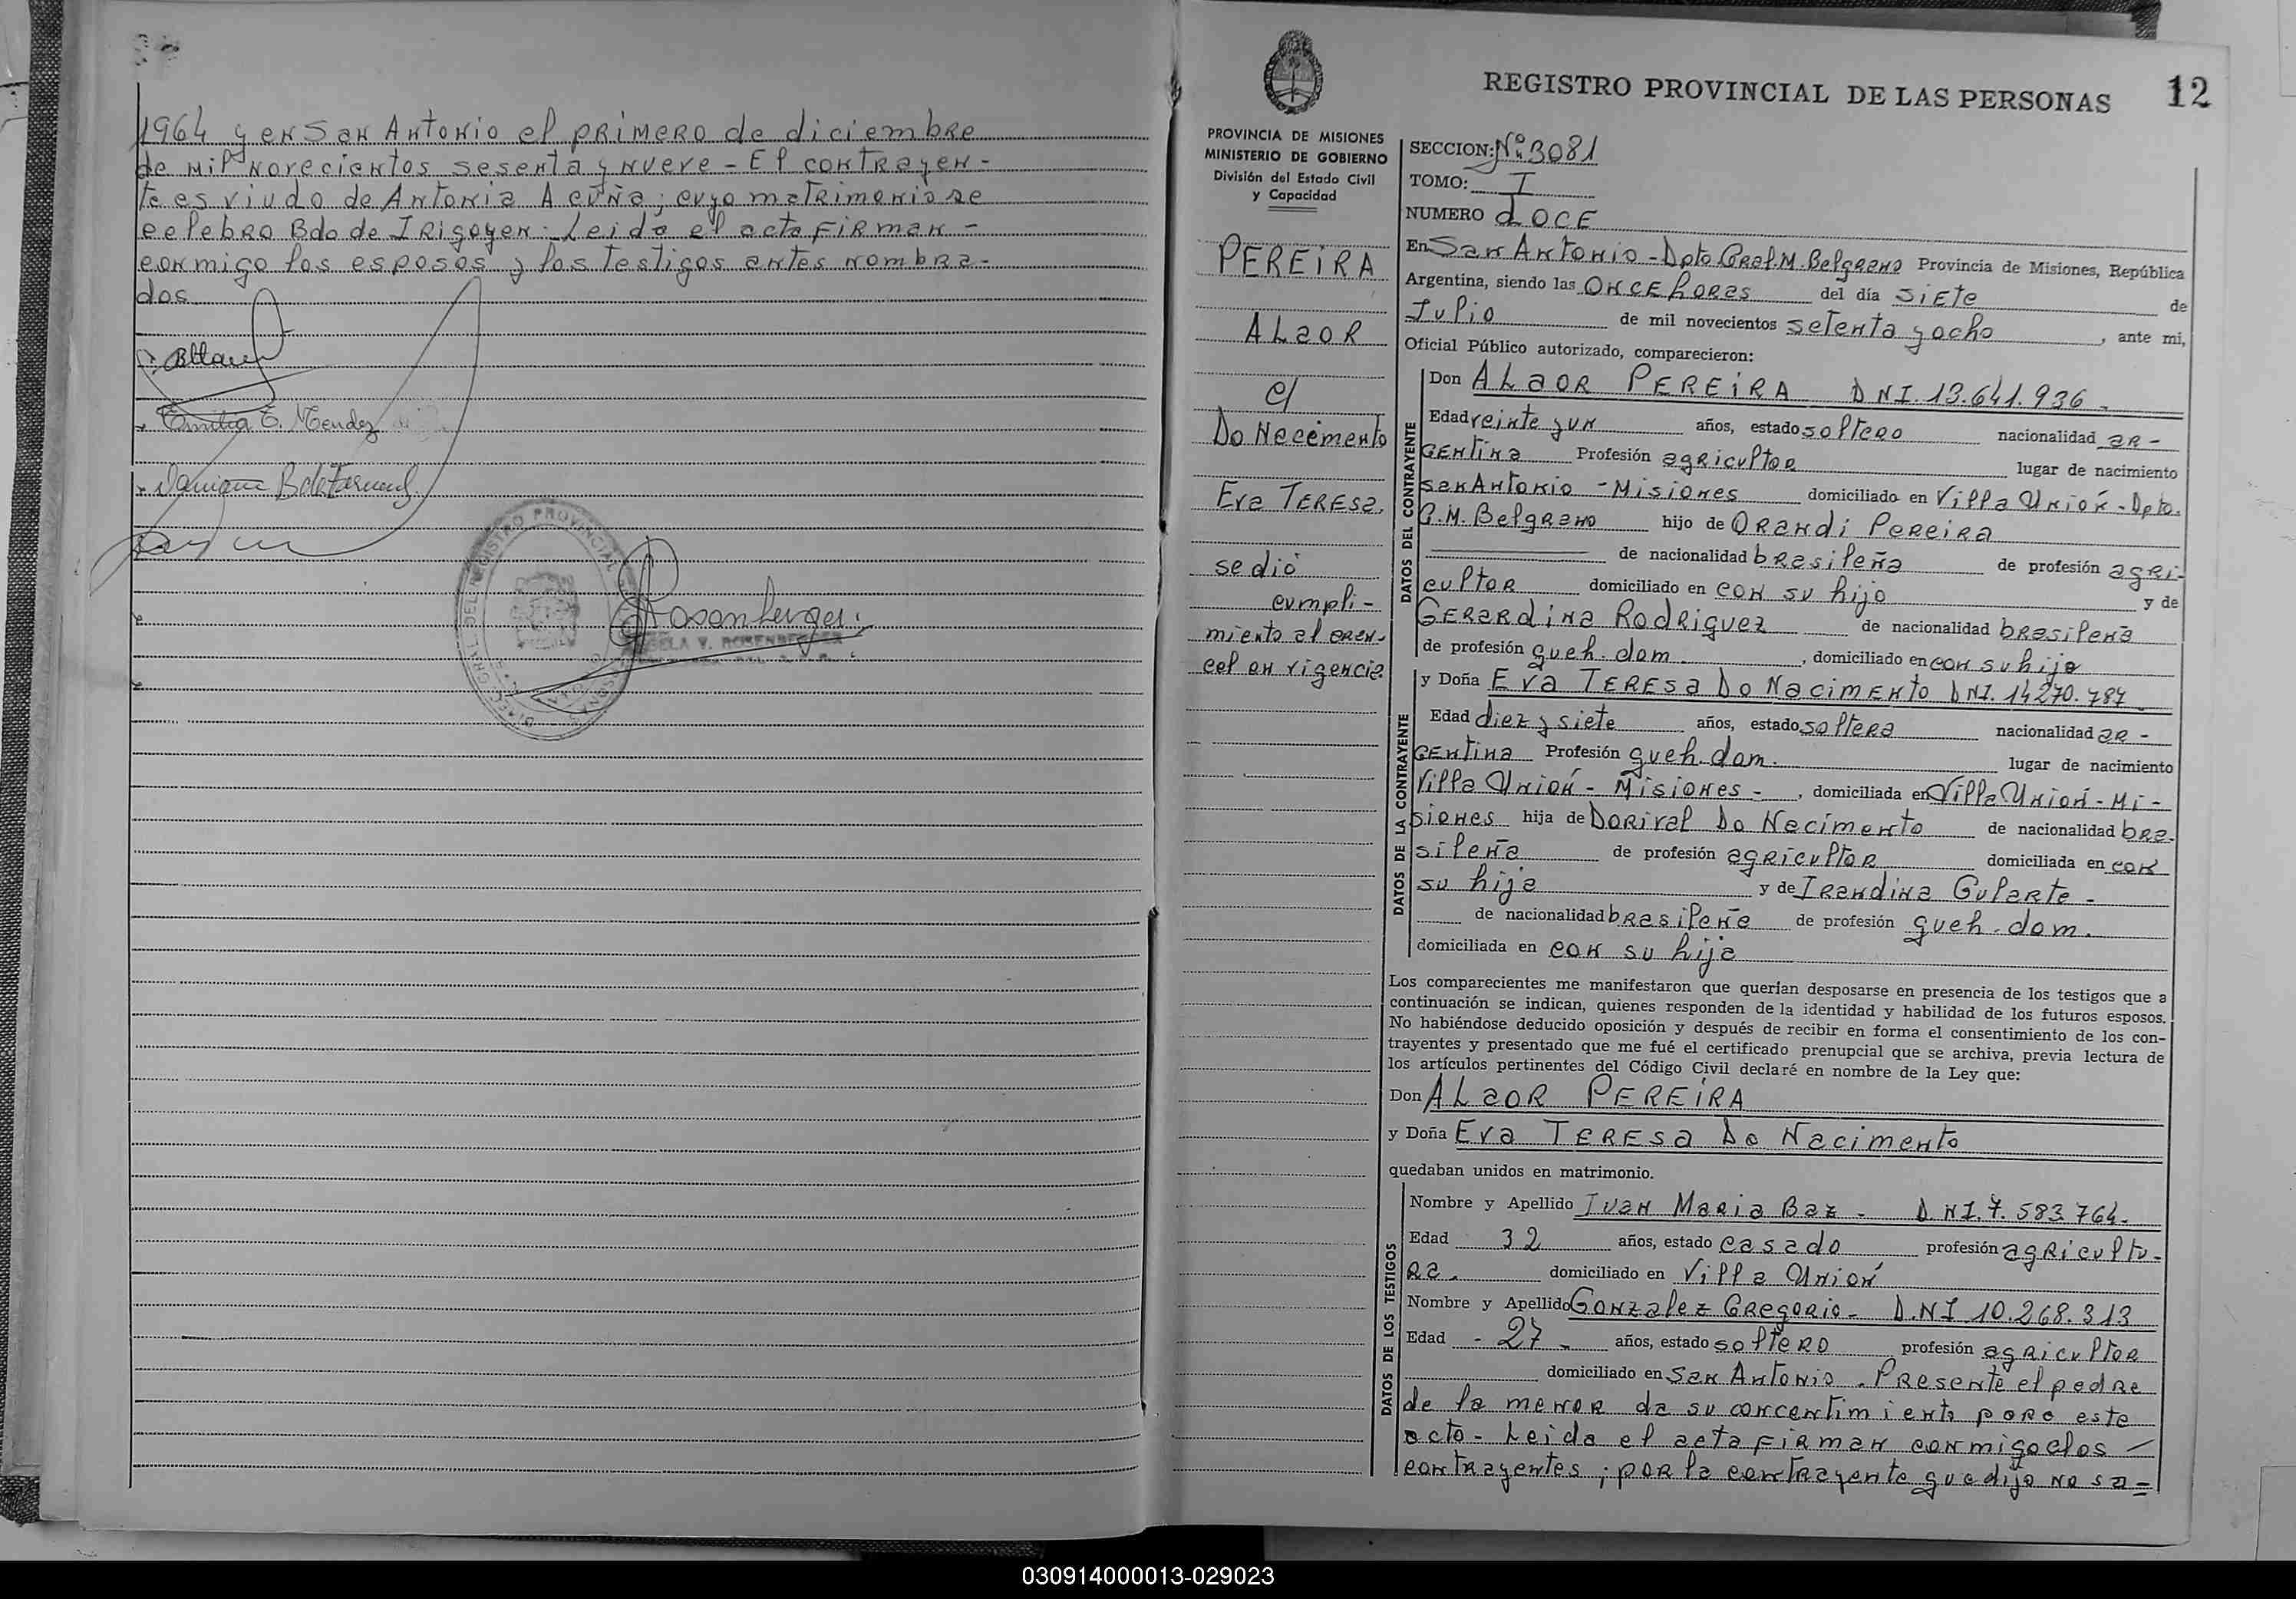 1964 y en San Antonio el primero de diciembre
de mil novecientos sesenta y nueve - El contrayen-
te es viudo de Antonia Acuña; cuyo matrimonio se
celebro Bdo de Irigoyen. Leida el acta firman -
conmigo los esposos y los testigos antes nombra-
dos
Emilia E. Mendez
Rosenberger
ROSENBERGER
REGISTRO PROVINCIAL DE LAS PERSONAS 12
PROVINCIA DE MISIONES
MINISTERIO DE GOBIERNO
División del Estado Civil
y Capacidad
PEREIRA
ALaOR
c/
Do Nacimento
Eva TERESa.
se dió
cumpli-
miento al aran-
cel en vigencia.
SECCION: Nº 3081
TOMO: I
NUMERO dOCE
En San Antonio - Dpto Gral. M. Belgrano Provincia de Misiones, República
Argentina, siendo las Once horas del día siete de
Julio de mil novecientos setenta y ocho, ante mi,
Oficial Público autorizado, comparecieron:
DATOS DEL CONTRAYENTE
Don ALaOR PEREiRA DNI. 13.641.936.
Edad veinte y un años, estado soltero nacionalidad ar-
gentina Profesión agricultor lugar de nacimiento
san Antonio - Misiones domiciliado en Villa Unión - Dpto.
G.M. Belgrano hijo de Orandi Pereira
de nacionalidad brasileña de profesión agri-
cultor domiciliado en con su hijo y de
Gerardina Rodriguez de nacionalidad brasileña
de profesión queh. dom., domiciliado en con su hijo
DATOS DE LA CONTRAYENTE
y Doña Eva TERESa Do Nacimento DNI. 14.270.787.
Edad diez y siete años, estado soltera nacionalidad ar-
gentina Profesión queh. dom. lugar de nacimiento
Villa Unión - Misiones -, domiciliada en Villa Unión - Mi-
siones hija de Dorival Do Nacimento de nacionalidad bra-
sileña de profesión agricultor domiciliada en con
su hija y de Irandina Gularte -
de nacionalidad brasileña de profesión queh. dom.
domiciliada en con su hija
Los comparecientes me manifestaron que querían desposarse en presencia de los testigos que a
continuación se indican, quienes responden de la identidad y habilidad de los futuros esposos.
No habiéndose deducido oposición y después de recibir en forma el consentimiento de los con-
trayentes y presentado que me fué el certificado prenupcial que se archiva, previa lectura de
los artículos pertinentes del Código Civil declaré en nombre de la Ley que:
Don ALaOR PEREiRA
y Doña Eva TERESa Do Nacimento
quedaban unidos en matrimonio.
DATOS DE LOS TESTIGOS
Nombre y Apellido Juan Maria Baz - D.NI. 7.583.764.
Edad 32 años, estado casado profesión agricultu-
ra. domiciliado en Villa Unión
Nombre y Apellido Gonzalez Gregorio - D.NI 10.268.313
Edad - 27 - años, estado soltero profesión agricultor
domiciliado en San Antonio. Presente el padre
de la menor da su concentimiento para este
acto - Leida el acta firman conmigo los -
contrayentes; por la contrayente que dijo no sa=
030914000013-029023